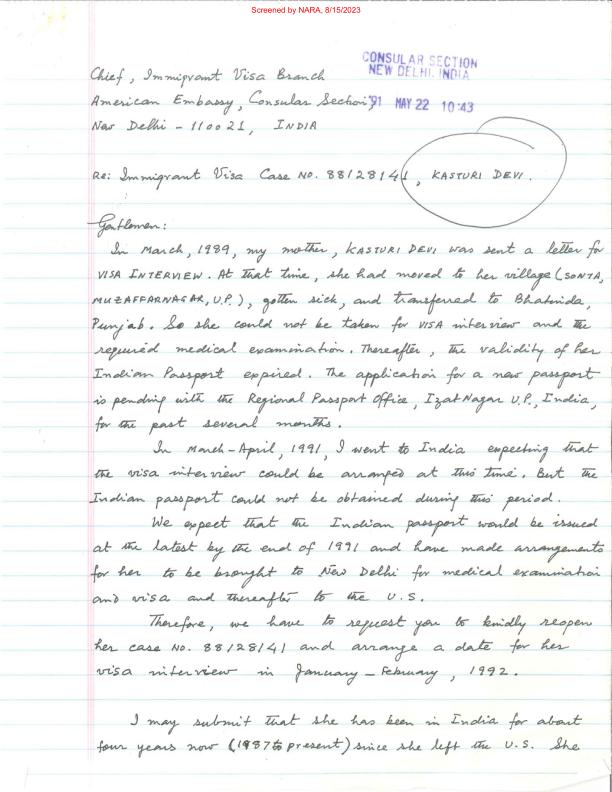 Screened by NARA, 8/15/2023
CONSULAR SECTION
NEW DELHI, INDIA
'91 MAY 22 10:43
Chief, Immigrant Visa Branch
American Embassy, Consular Section,
New Delhi - 110021, INDIA
Re: Immigrant Visa Case No. 88128141, KASTURI DEVI.
Gentlemen:
In March, 1989, my mother, KASTURI DEVI was sent a letter for
VISA INTERVIEW. At that time, she had moved to her village (SONTA,
MUZAFFARNAGAR, U.P.), gotten sick, and transferred to Bhatinda,
Punjab. So she could not be taken for VISA interview and the
required medical examination. Thereafter, the validity of her
Indian Passport expired. The application for a new passport
is pending with the Regional Passport Office, Izat Nagar U.P., India,
for the past several months.
In March-April, 1991, I went to India expecting that
the visa interview could be arranged at this time. But the
Indian passport could not be obtained during this period.
We expect that the Indian passport would be issued
at the latest by the end of 1991 and have made arrangements
for her to be brought to New Delhi for medical examination
and visa and thereafter to the U.S.
Therefore, we have to request you to kindly reopen
her case No. 88128141 and arrange a date for her
visa interview in January - February, 1992.
I may submit that she has been in India for about
four years now (1987 to present) since she left the U.S. She